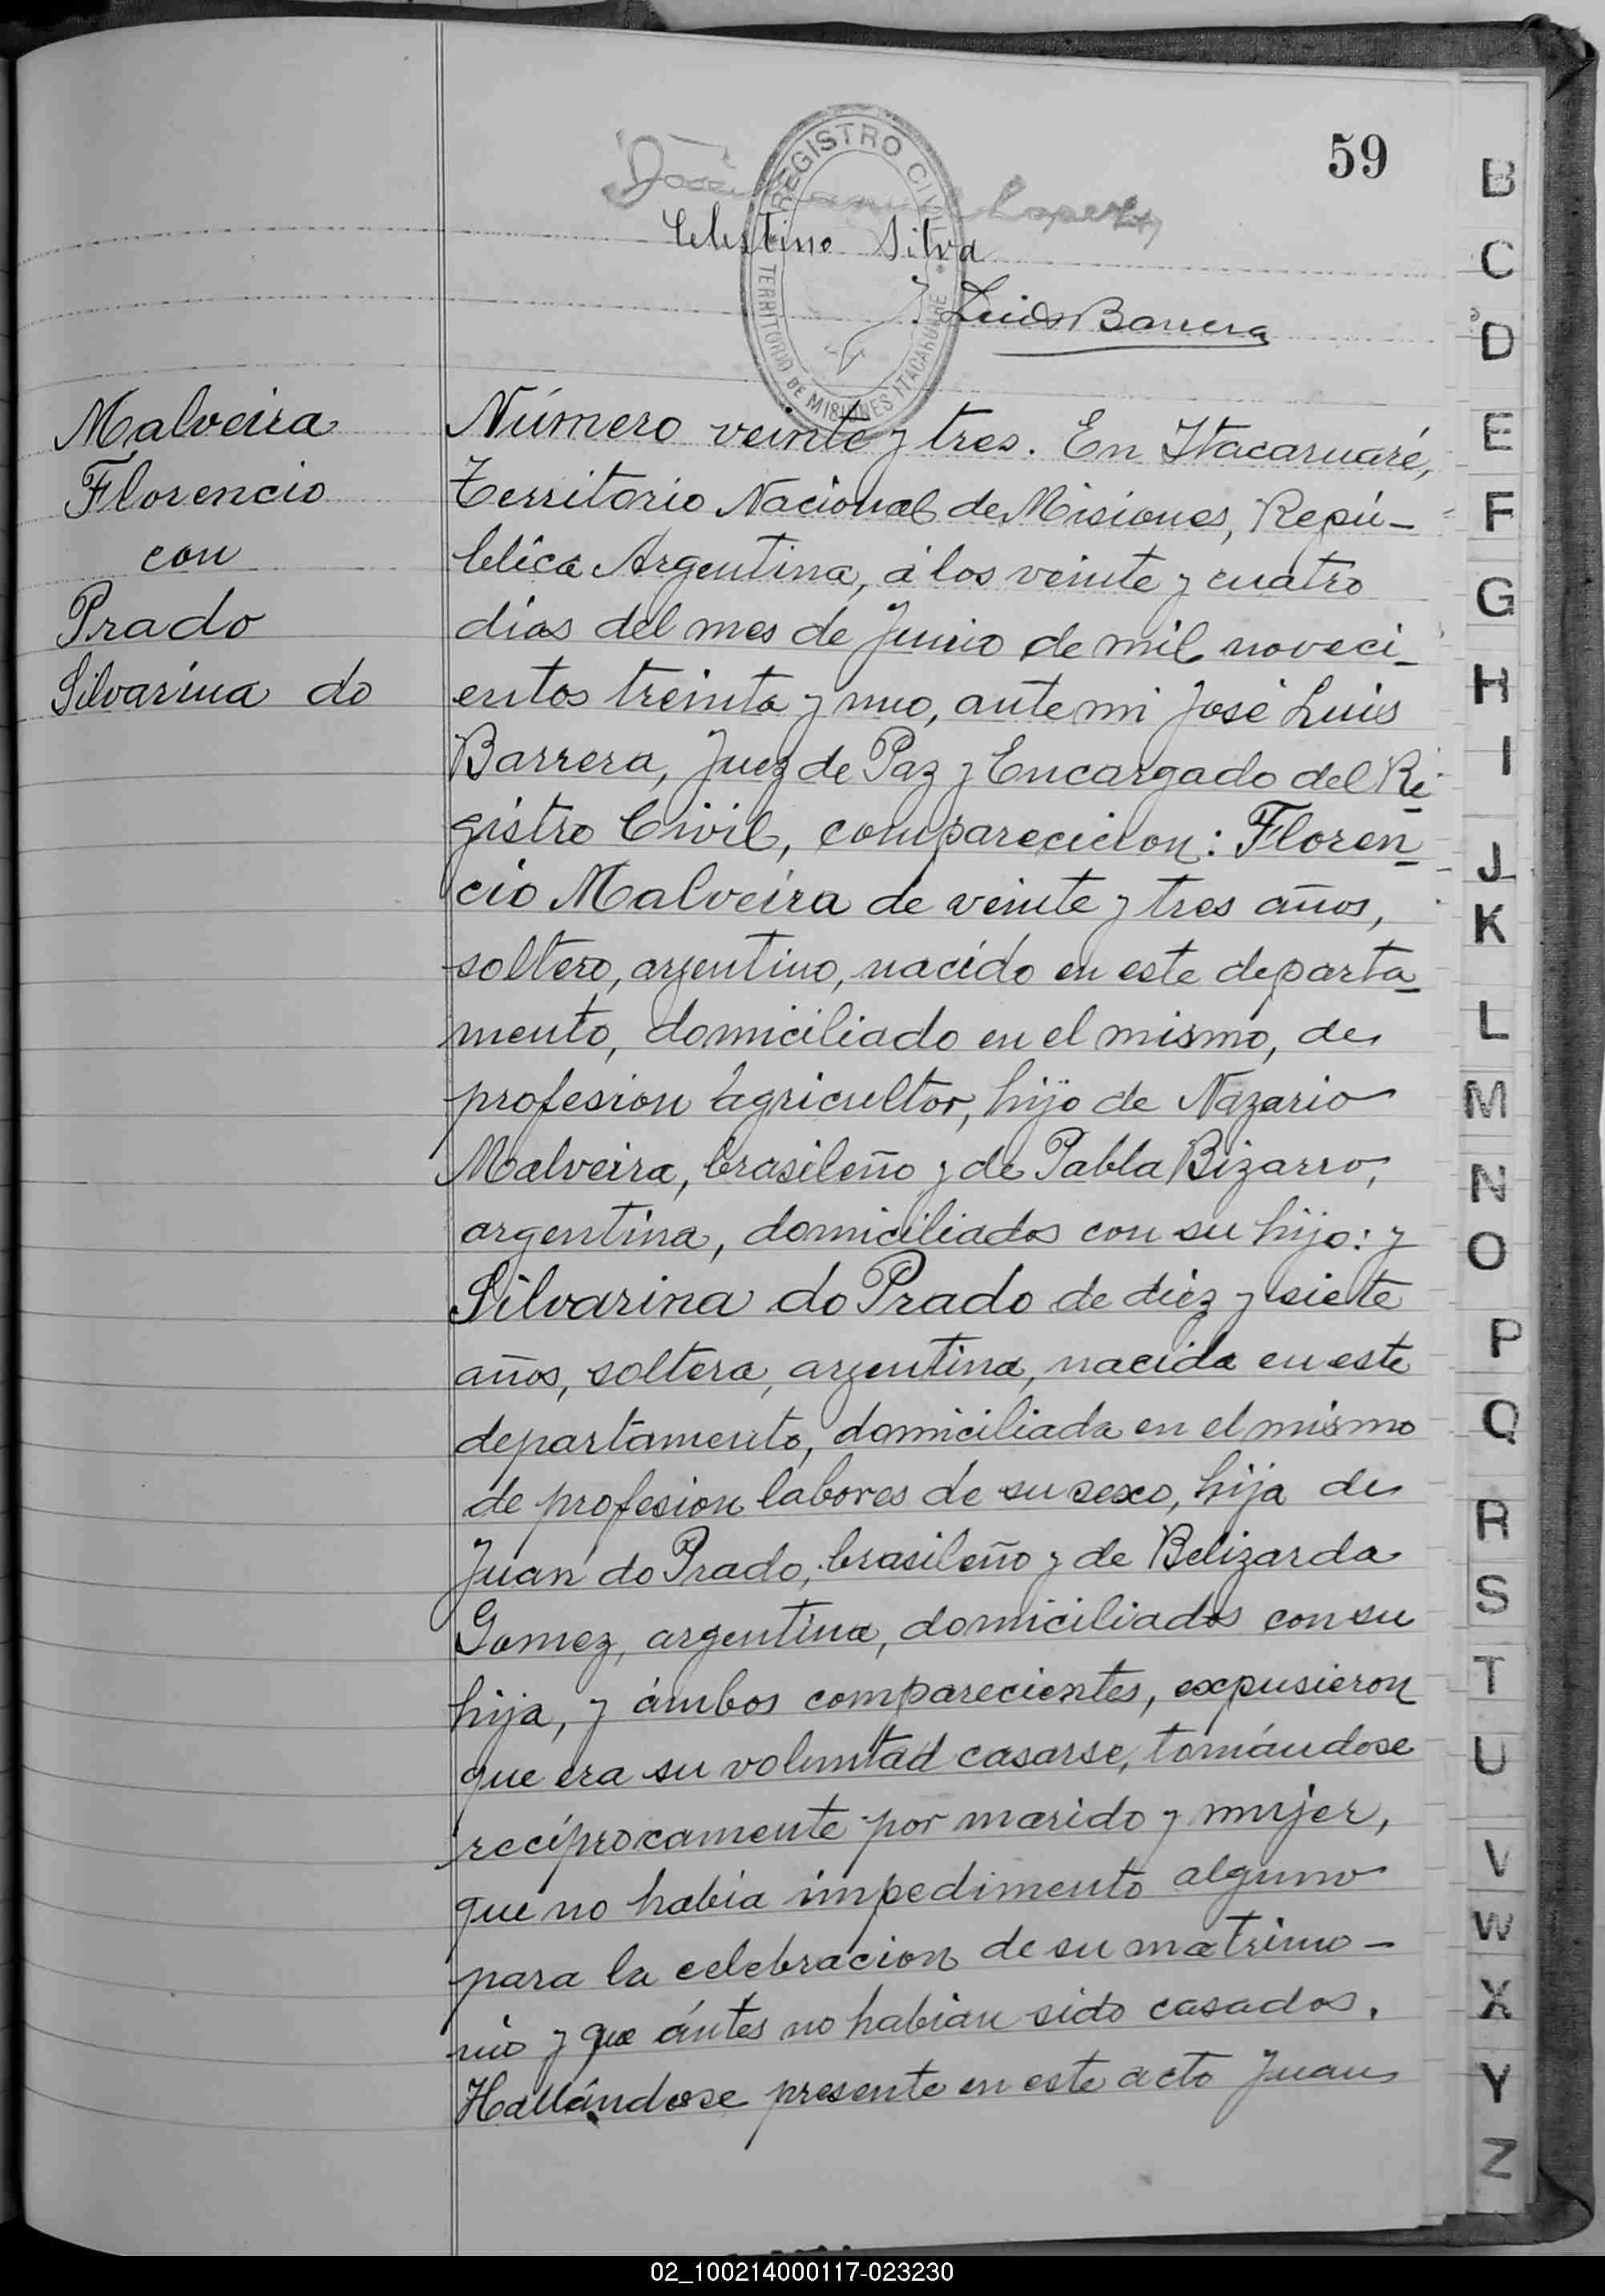 59
José Manuel Lopez
Celestino Silva
J. Luis Barrera
REGISTRO CIVIL
TERRITORIO DE MISIONES ITACARUARE
Malveira
Florencio
con
Prado
Silvarina do
Número veinte y tres. En Itacaruaré,
Territorio Nacional de Misiones, Repú-
blica Argentina, á los veinte y cuatro
dias del mes de Junio de mil noveci-
entos treinta y uno, ante mi José Luis
Barrera, Juez de Paz y Encargado del Re-
gistro Civil, comparecieron: Floren-
cio Malveira de veinte y tres años,
soltero, argentino, nacido en este departa-
mento, domiciliado en el mismo, de
profesion agricultor, hijo de Nazario
Malveira, brasileño y de Pabla Bizarro,
argentina, domiciliados con su hijo: y
Silvarina do Prado de diez y siete
años, soltera, argentina, nacida en este
departamento, domiciliada en el mismo
de profesion labores de su sexo, hija de
Juan do Prado, brasileño y de Belizarda
Gomez, argentina, domiciliados con su
hija, y ámbos comparecientes, expusieron
que era su voluntad casarse, tomándose
recíprocamente por marido y mujer,
que no habia impedimento alguno
para la celebracion de su matrimo-
nio y que ántes no habian sido casados.
Hallándose presente en este acto Juan
B
C
D
E
F
G
H
I
J
K
L
M
N
O
P
Q
R
S
T
U
V
W
X
Y
Z
02_100214000117-023230